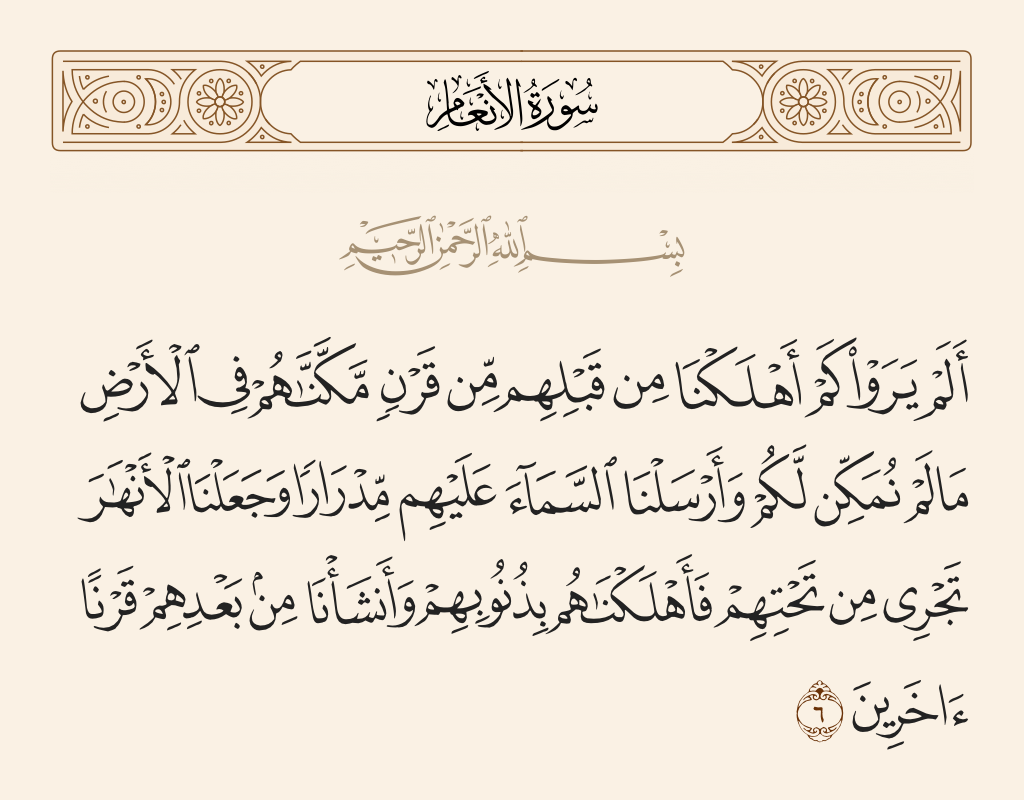 سُورَةُ الأَنْعَامِ
بِسْمِ ٱللَّهِ ٱلرَّحْمَٰنِ ٱلرَّحِيمِ
أَلَمْ يَرَوْا۟ كَمْ أَهْلَكْنَا مِن قَبْلِهِم مِّن قَرْنٍ مَّكَّنَّٰهُمْ فِى ٱلْأَرْضِ
مَا لَمْ نُمَكِّن لَّكُمْ وَأَرْسَلْنَا ٱلسَّمَآءَ عَلَيْهِم مِّدْرَارًا وَجَعَلْنَا ٱلْأَنْهَٰرَ
تَجْرِى مِن تَحْتِهِمْ فَأَهْلَكْنَٰهُم بِذُنُوبِهِمْ وَأَنشَأْنَا مِنۢ بَعْدِهِمْ قَرْنًا
ءَاخَرِينَ ٦